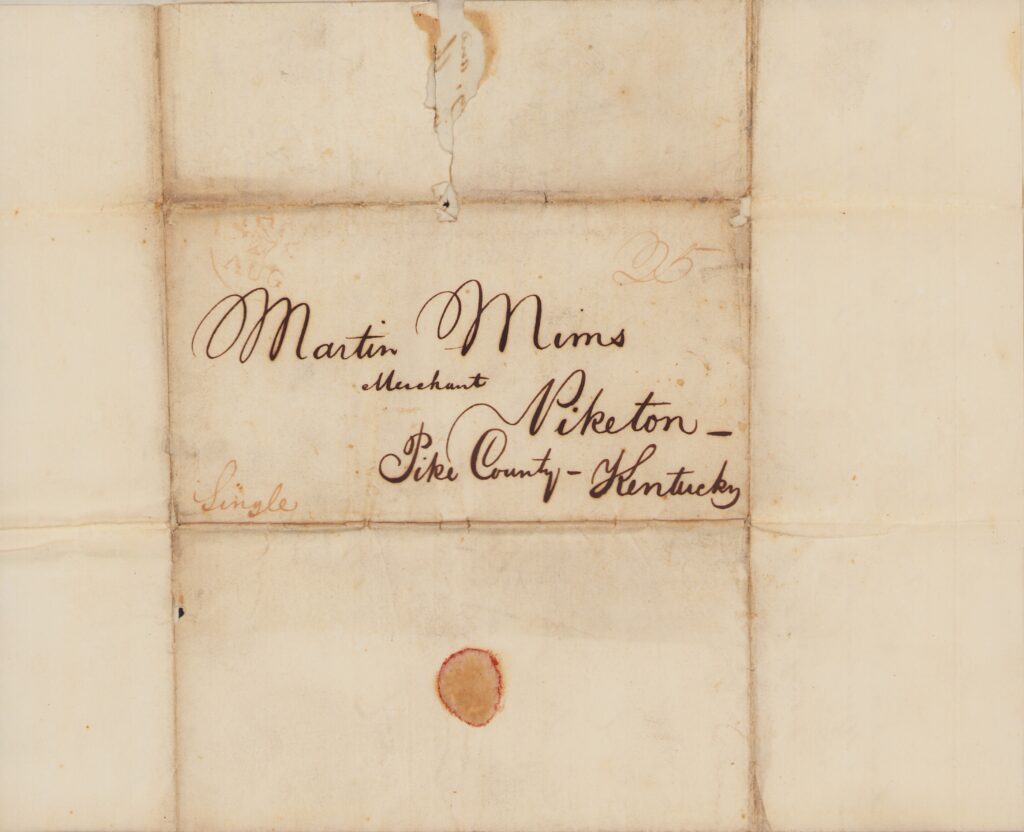 25
AUG
Martin Mims
Merchant
Piketon –
Pike County – Kentucky
Single